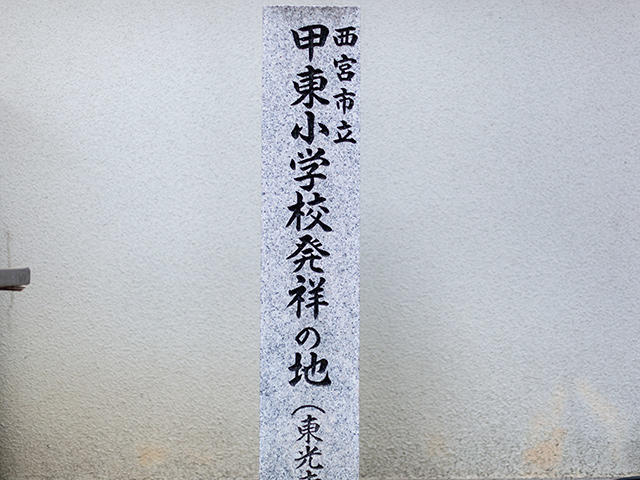 西宮市立
甲東小学校発祥の地
(東光